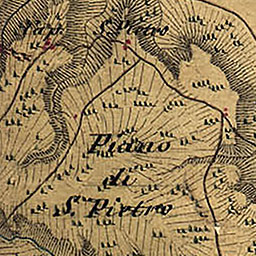 Cap.
S. Pietro
Piano
di
S. Pietro